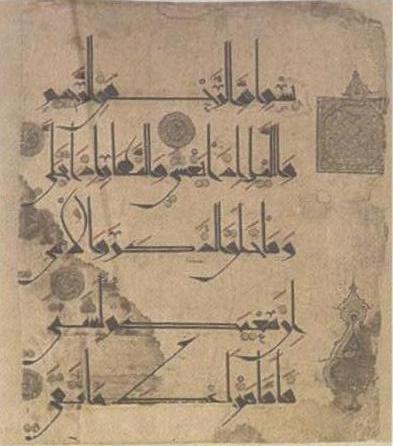 بسم الله الرحمن الرحيم
واليل اذا يغشى والنهار اذا تجلى
وما خلق الذكر والانثى
ان سعيكم لشتى
فاما من اعطى واتقى